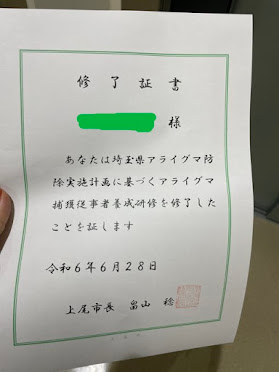 修了証書
様
あなたは埼玉県アライグマ防
除実施計画に基づくアライグマ
捕獲従事者養成研修を修了した
ことを証します
令和6年6月28日
上尾市長 畠山 稔